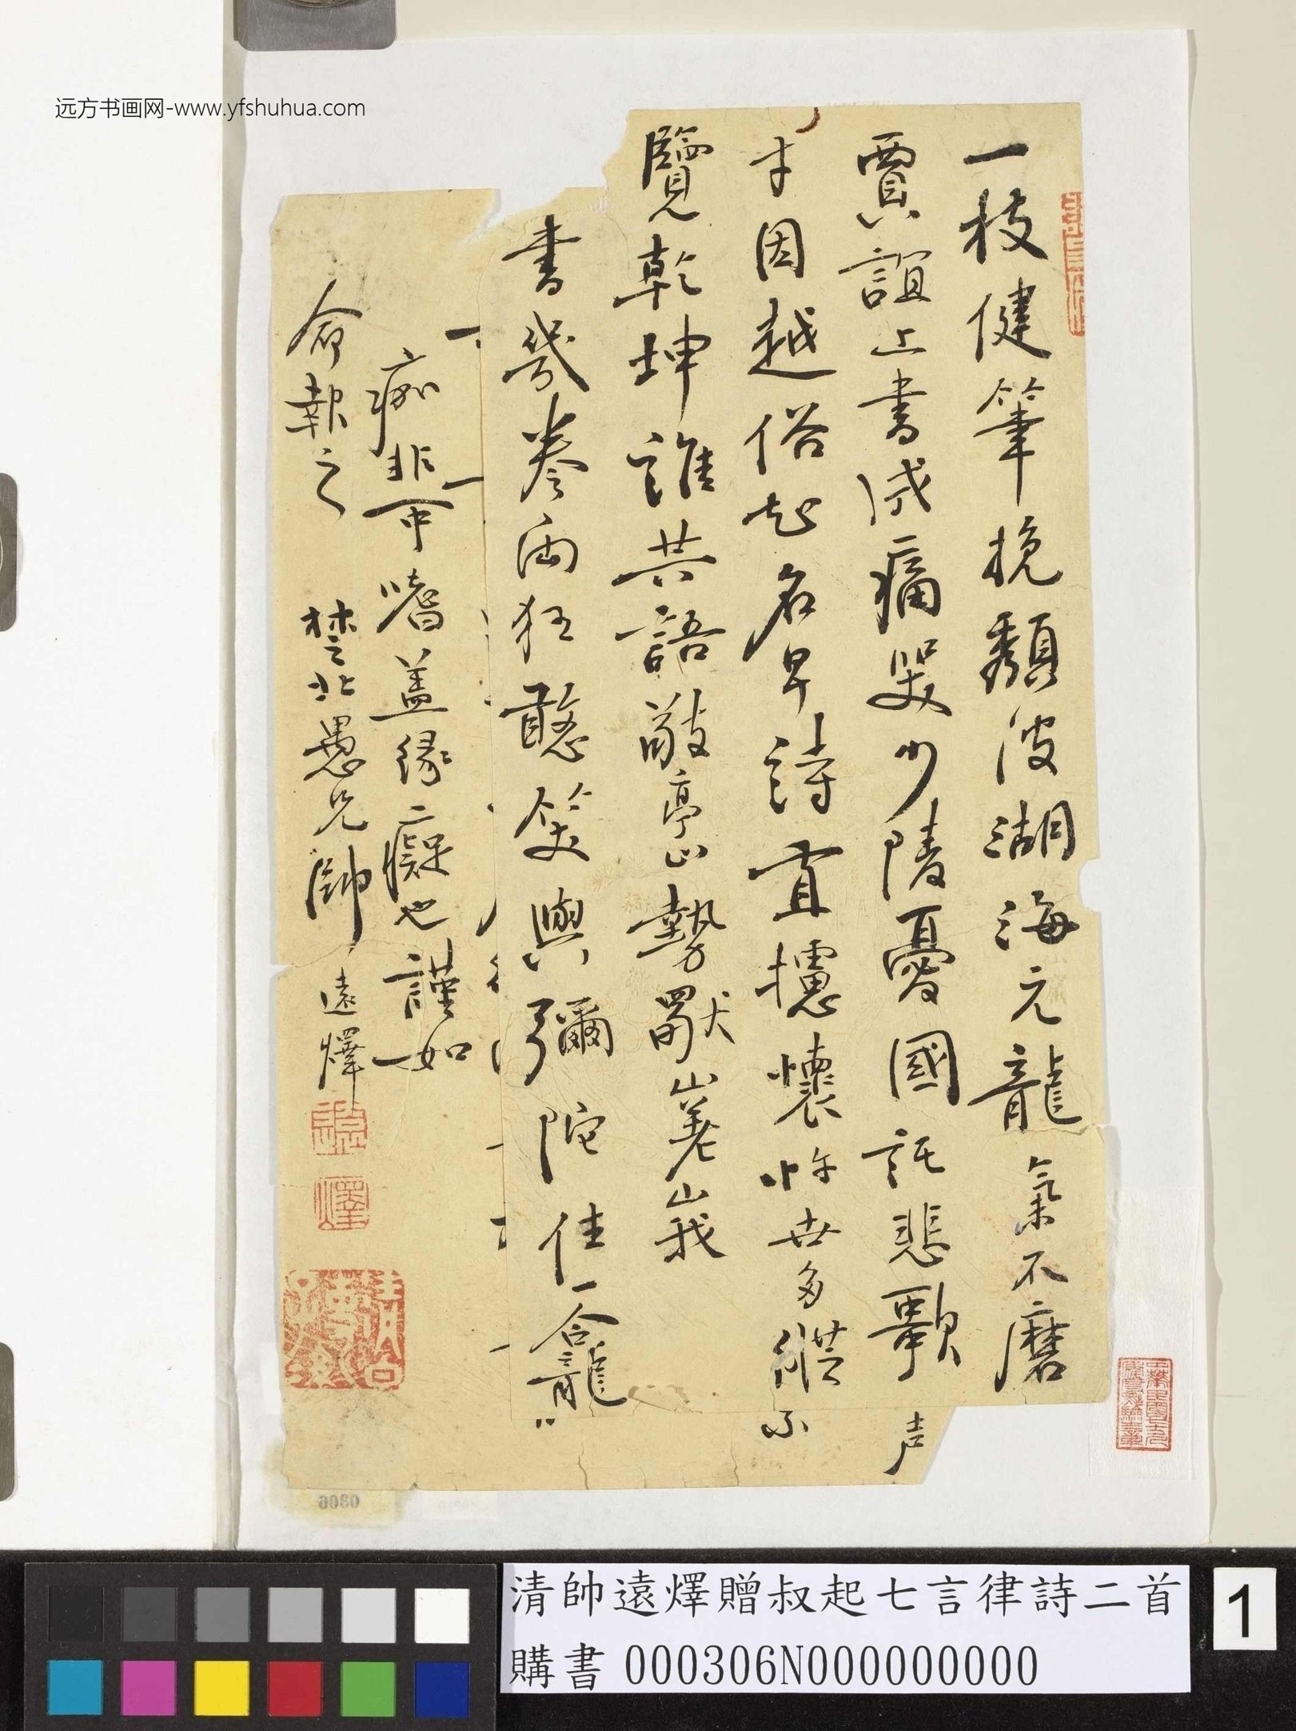 远方书画网-www.yfshuhua.com
一枝健筆挽頹波湖海元龍氣不磨
賈誼上書成痛哭少陵憂國託悲歌
才因越俗起名早詩直攄懷忤世多縱不
覽乾坤誰共語敬亭山勢獸嵳峩
書幾卷両狂憨笑與彌陀住一龕龍
声
痂非所嗜蓋緣癡也謹如
命報之
楚北愚兄帥遠燡
0306
清帥遠燡贈叔起七言律詩二首
購書 000306N000000000
1